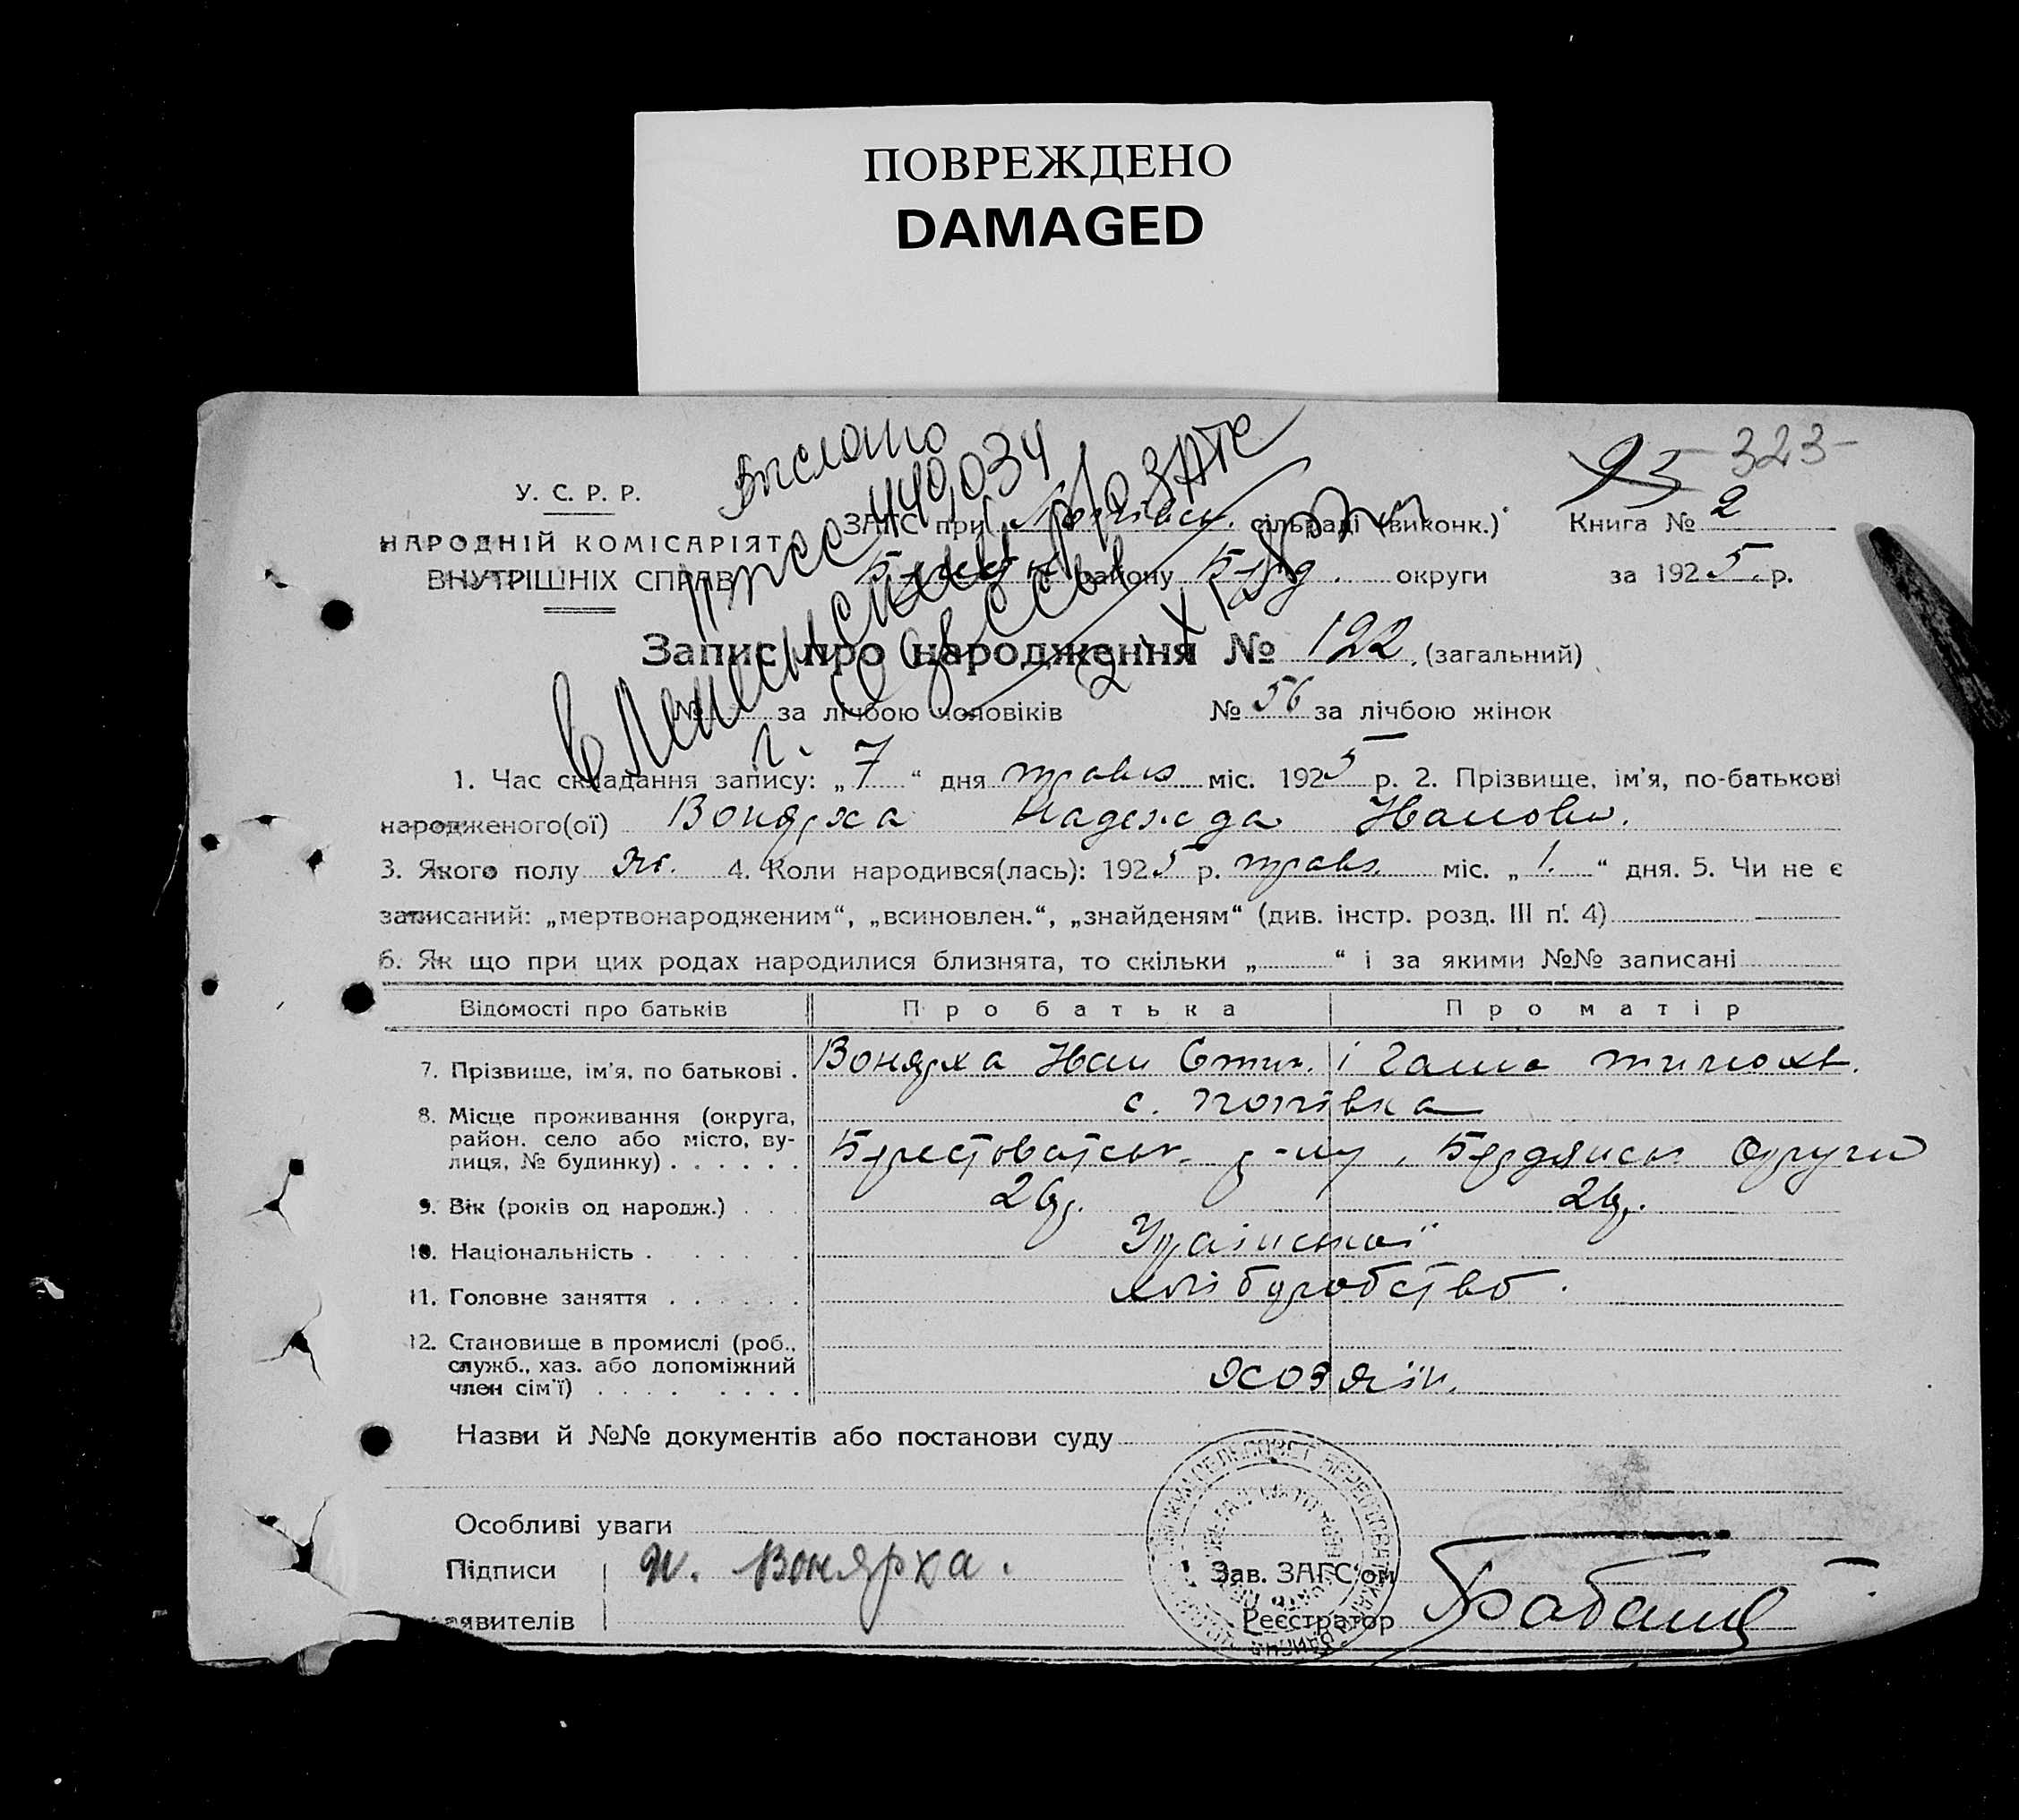 ПОВРЕЖДЕНО
DAMAGED
323
95
Выслано
У. С. Р. Р.
НАРОДНІЙ КОМІСАРІЯТ
ВНУТРІШНІХ СПРАВ
ЗАГС при Попівськ. сільраді (виконк.)
Книга № 2
району Берд. округи
за 1925 р.
Запис про народження № 122 (загальний)
№ за лічбою чоловіків № 56 за лічбою жінок
1. Час складання запису: „ 7 “ дня травня міс. 1925 р. 2. Прізвище, ім'я, по-батькові
народженого(ої) Вонярха Надежда Иванови.
3. Якого полу ж. 4. Коли народився(лась): 1925 р. травн. міс. „ 1. “ дня. 5. Чи не є
записаний: „мертвонародженим“, „всиновлен.“, „знайденям“ (див. інстр. розд. III п. 4)
6. Як що при цих родах народилися близнята, то скільки „ “ і за якими №№ записані
Відомості про батьків Про батька Про матір
7. Прізвище, ім'я, по батькові . Вонярха Иван і
8. Місце проживання (округа, район, село або місто, ву-лиця, № будинку) . . . . . . с. Попівка
Берестоватськ. р-ну, Бердянськ округи
9. Вік (років од народж.) . . .
10. Національність . . . . . Україньскої
11. Головне заняття . . . . . . хлібуробство.
12. Становище в промислі (роб., служб., хаз. або допоміжний член сім'ї) . . . . . . . . хозяїн.
Назви й №№ документів або постанови суду
Особливі уваги
Підписи И. Вонярха.
явителів
Зав. ЗАГС'ом
Реєстратор